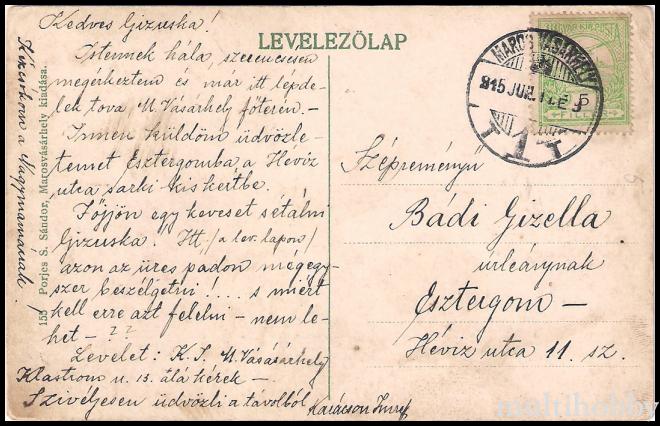 Kedves Gizuska!
LEVELEZŐLAP
Istennek hála, szerencsésen
megérkeztem és már itt lépde-
lek tova M. Vásárhely főterén. -
Innen küldöm üdvözle-
temet Esztergomba a Héviz
utca sarki kis kertbe.
Jőjjön egy keveset sétálni
Gizuska. Itt / a lev. lapon /
azon az üres padon mégegy-
szer beszélgetni! .... s miért
kell erre azt felelni - nem le-
het - ??
Levelet: K. I. M. Vásásárhely
Klastrom u. 13. alá kérek -
Szivélyesen üdvözli a távolból
Karácson Imre
Kézcsókom a Nagymamának!
153 Porjes S. Sándor, Marosvásárhely kiadása.
MAGYAR KIR. POSTA
5
FILLÉR
MAROSVÁSÁRHELY
915 JUL
Szépreményü
Bádi Gizella
úrleánynak
Esztergom -
Héviz utca 11. sz.
multihobby